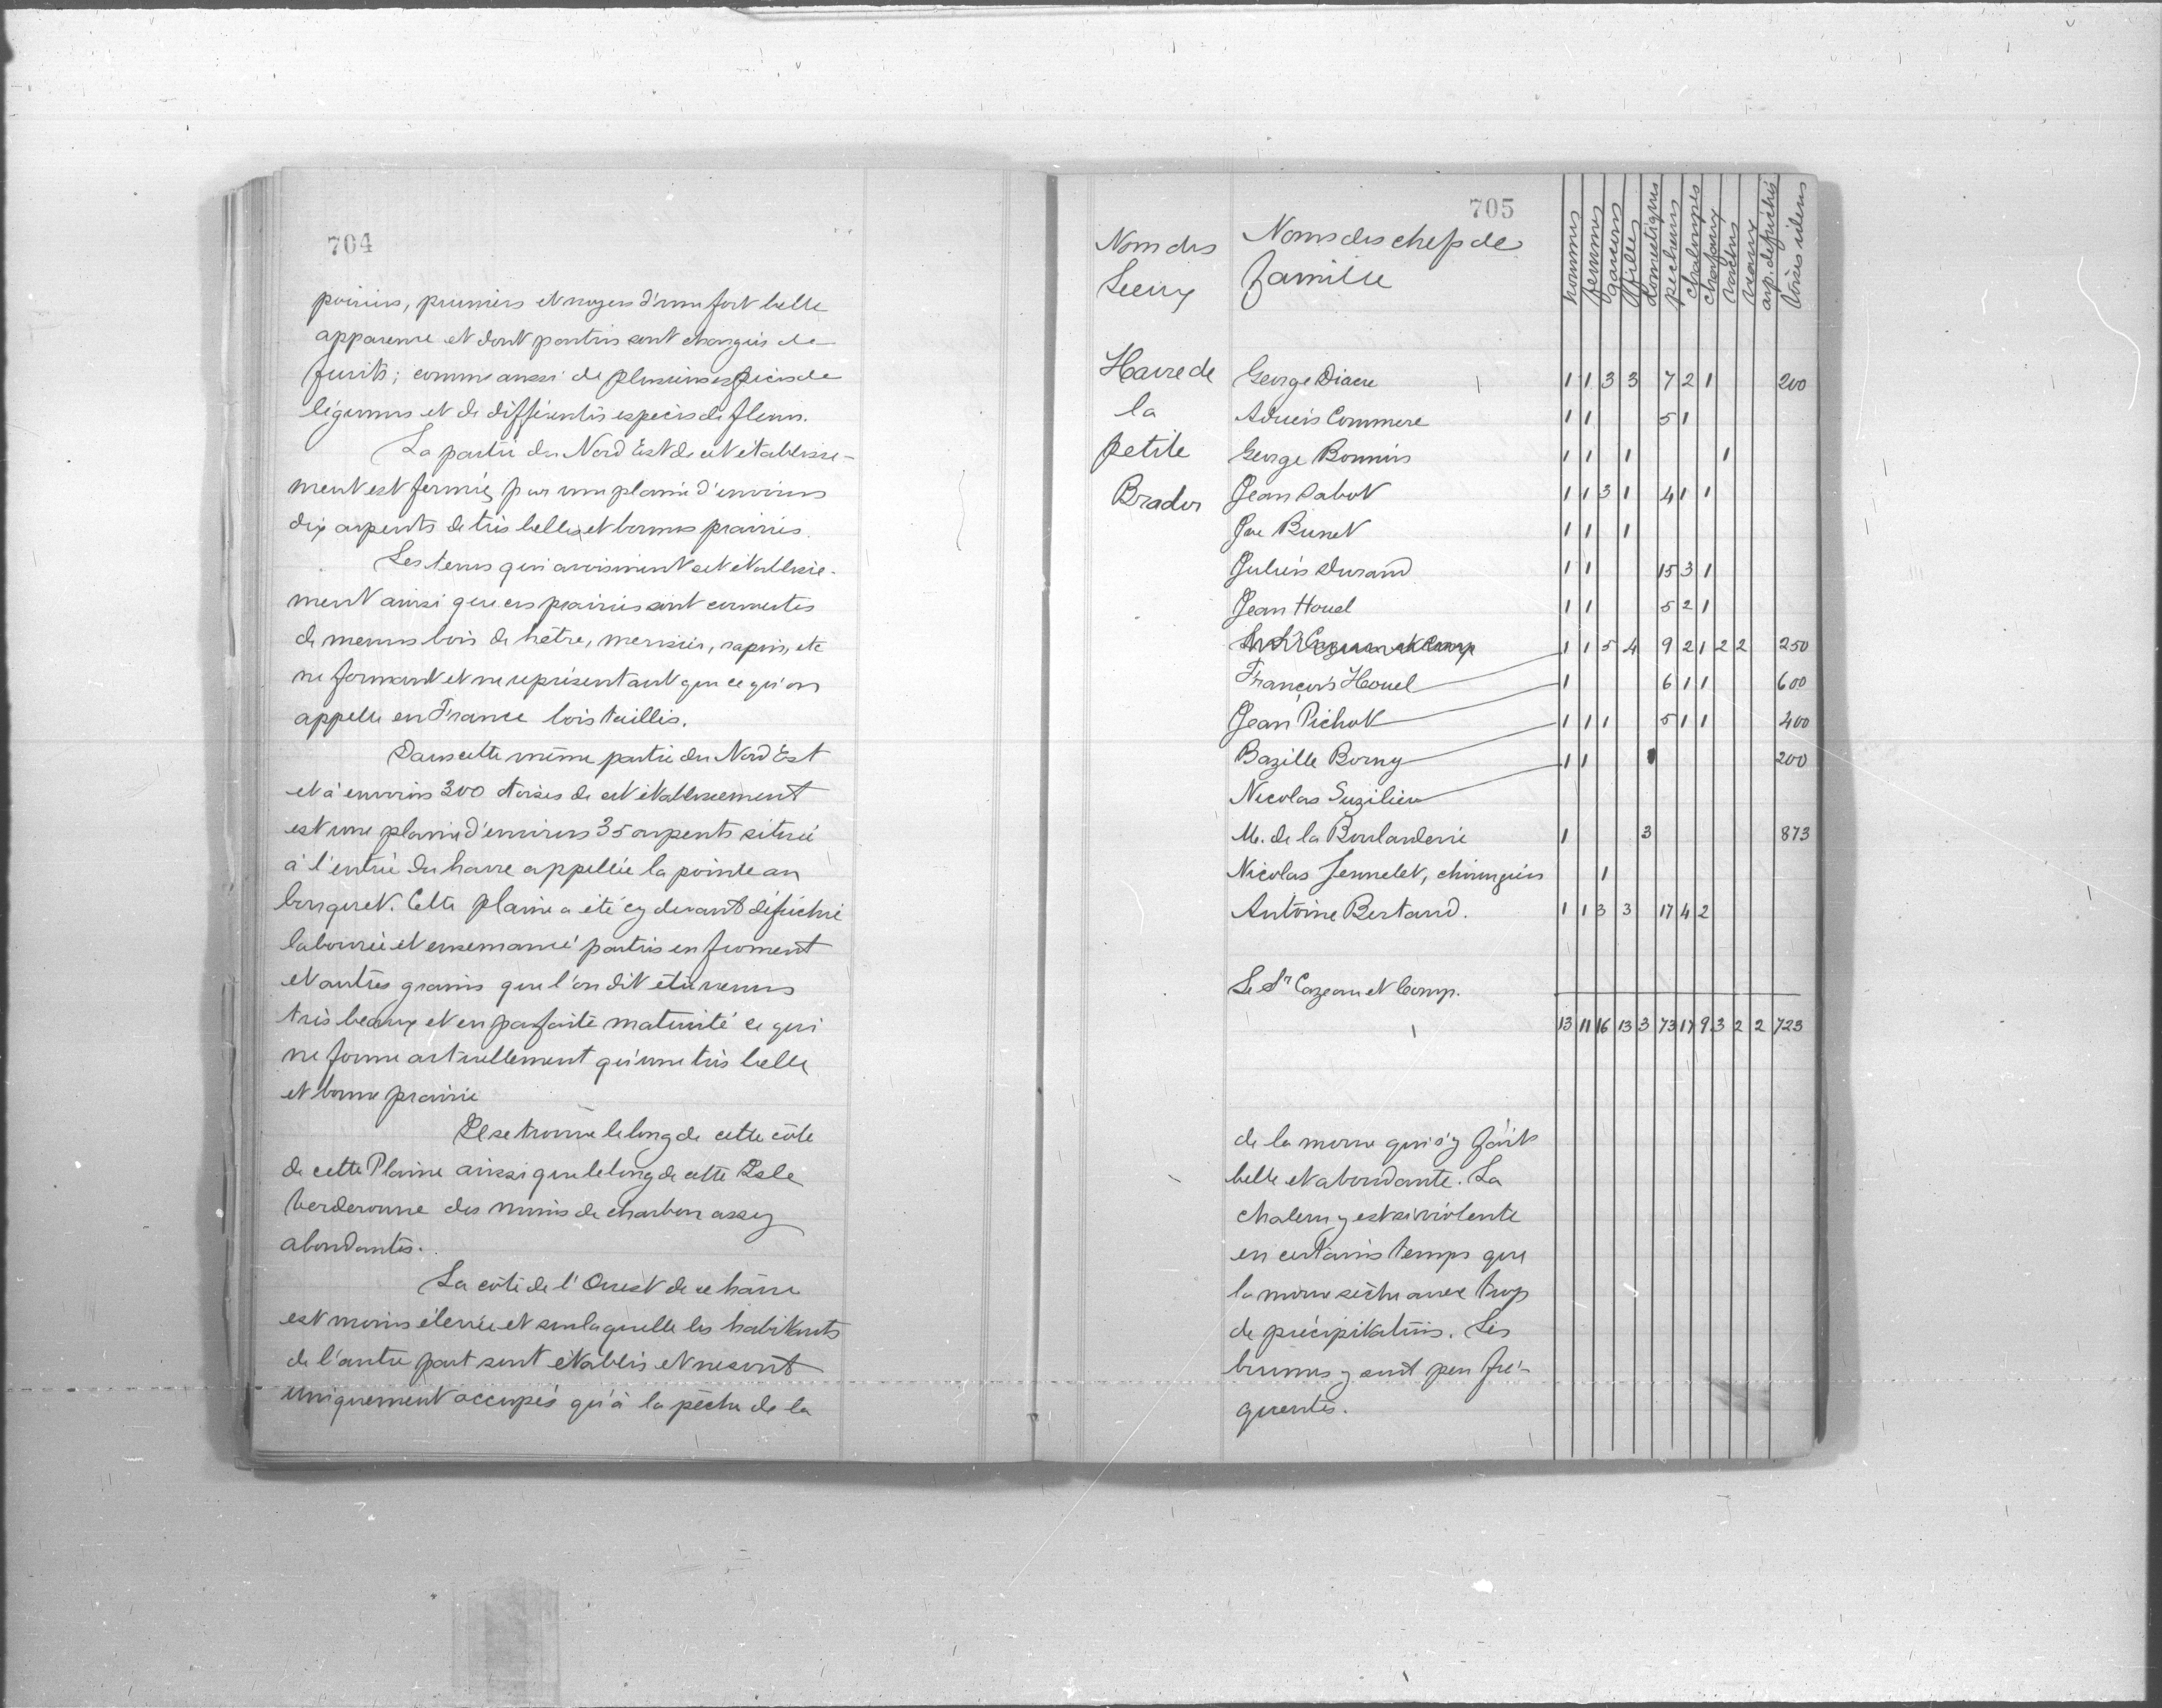 704
poiriers, pruniers et noyers d'une fort belle
apparence et dont partis sont chargés de
fruits; comme aussi de plusieurs espèces de
légumes et de différentes espèces de fleurs.
La partie du Nord Est de cet établisse-
ment est fermée par une plaine d'environs
dix arpents de très belles et bonnes prairies.
Les terres qui avoisinent cet établisse-
ment ainsi que ces prairies sont couvertes
de menus bois de hêtre, merisier, sapin, etc
ne formant et ne représentant que ce qu'on
appelle en France bois taillis.
Dans cette même partie du Nord Est
et à environs 300 toises de cet établissement
est une plaine d'environs 35 arpents située
à l'entrée du havre appellée la pointe au
bouquet. Cette plaine a été cy devant défriché
labourée et ensemancé partis en froment
et autres grains que l'on dit être venus
très beaux et en parfaite maturité ce qui
ne forme actuellement qu'une très belle
et bonne prairie
Il se trouve le long de cette côte
de cette Plaine ainsi que le long de cette Isle
Verderonne des mines de charbon assez
abondantes.
La côté de l'Ouest de ce havre
est moins élevée et sur laquelle les habitants
de l'autre part sont établis et ne sont
uniquement occupés qu'à la pêche de la
705
Nom des Lieux Noms des chefs de famille hommes femmes garcons filles domestiques pecheurs chaloupes chafaux vaches arp. defrichés toises idem
Havre de la petite Brador
George Diacre 1 1 3 3 7 2 1 200
Commere 1 1 5 1
George Bonnin 1 1 1 1
Jean Sabot 1 1 3 1 4 1 1
Brunet 1 1 1
Julien Durand 1 1 15 3 1
Jean Houel 1 1 5 2 1
1 1 5 4 9 2 1 2 2 250
François Houel 1 6 1 1 600
Jean Pichot 1 1 1 5 1 1 400
Bazille Borny 1 1 200
Nicolas Suzilieu
M. de la Boularderie 1 3 873
Nicolas Jennelet, chirurgien 1
Antoine Bertand. 1 1 3 3 17 4 2
Le Sr Cazeau et Comp.
13 11 16 13 3 73 17 9 3 2 2 723
de la morue qui s'y fait
belle et abondante. La
chaleur y est si violente
en certains temps que
la morue sèche avec trop
de précipitation. Les
brumes y sont peu fré-
quentes.